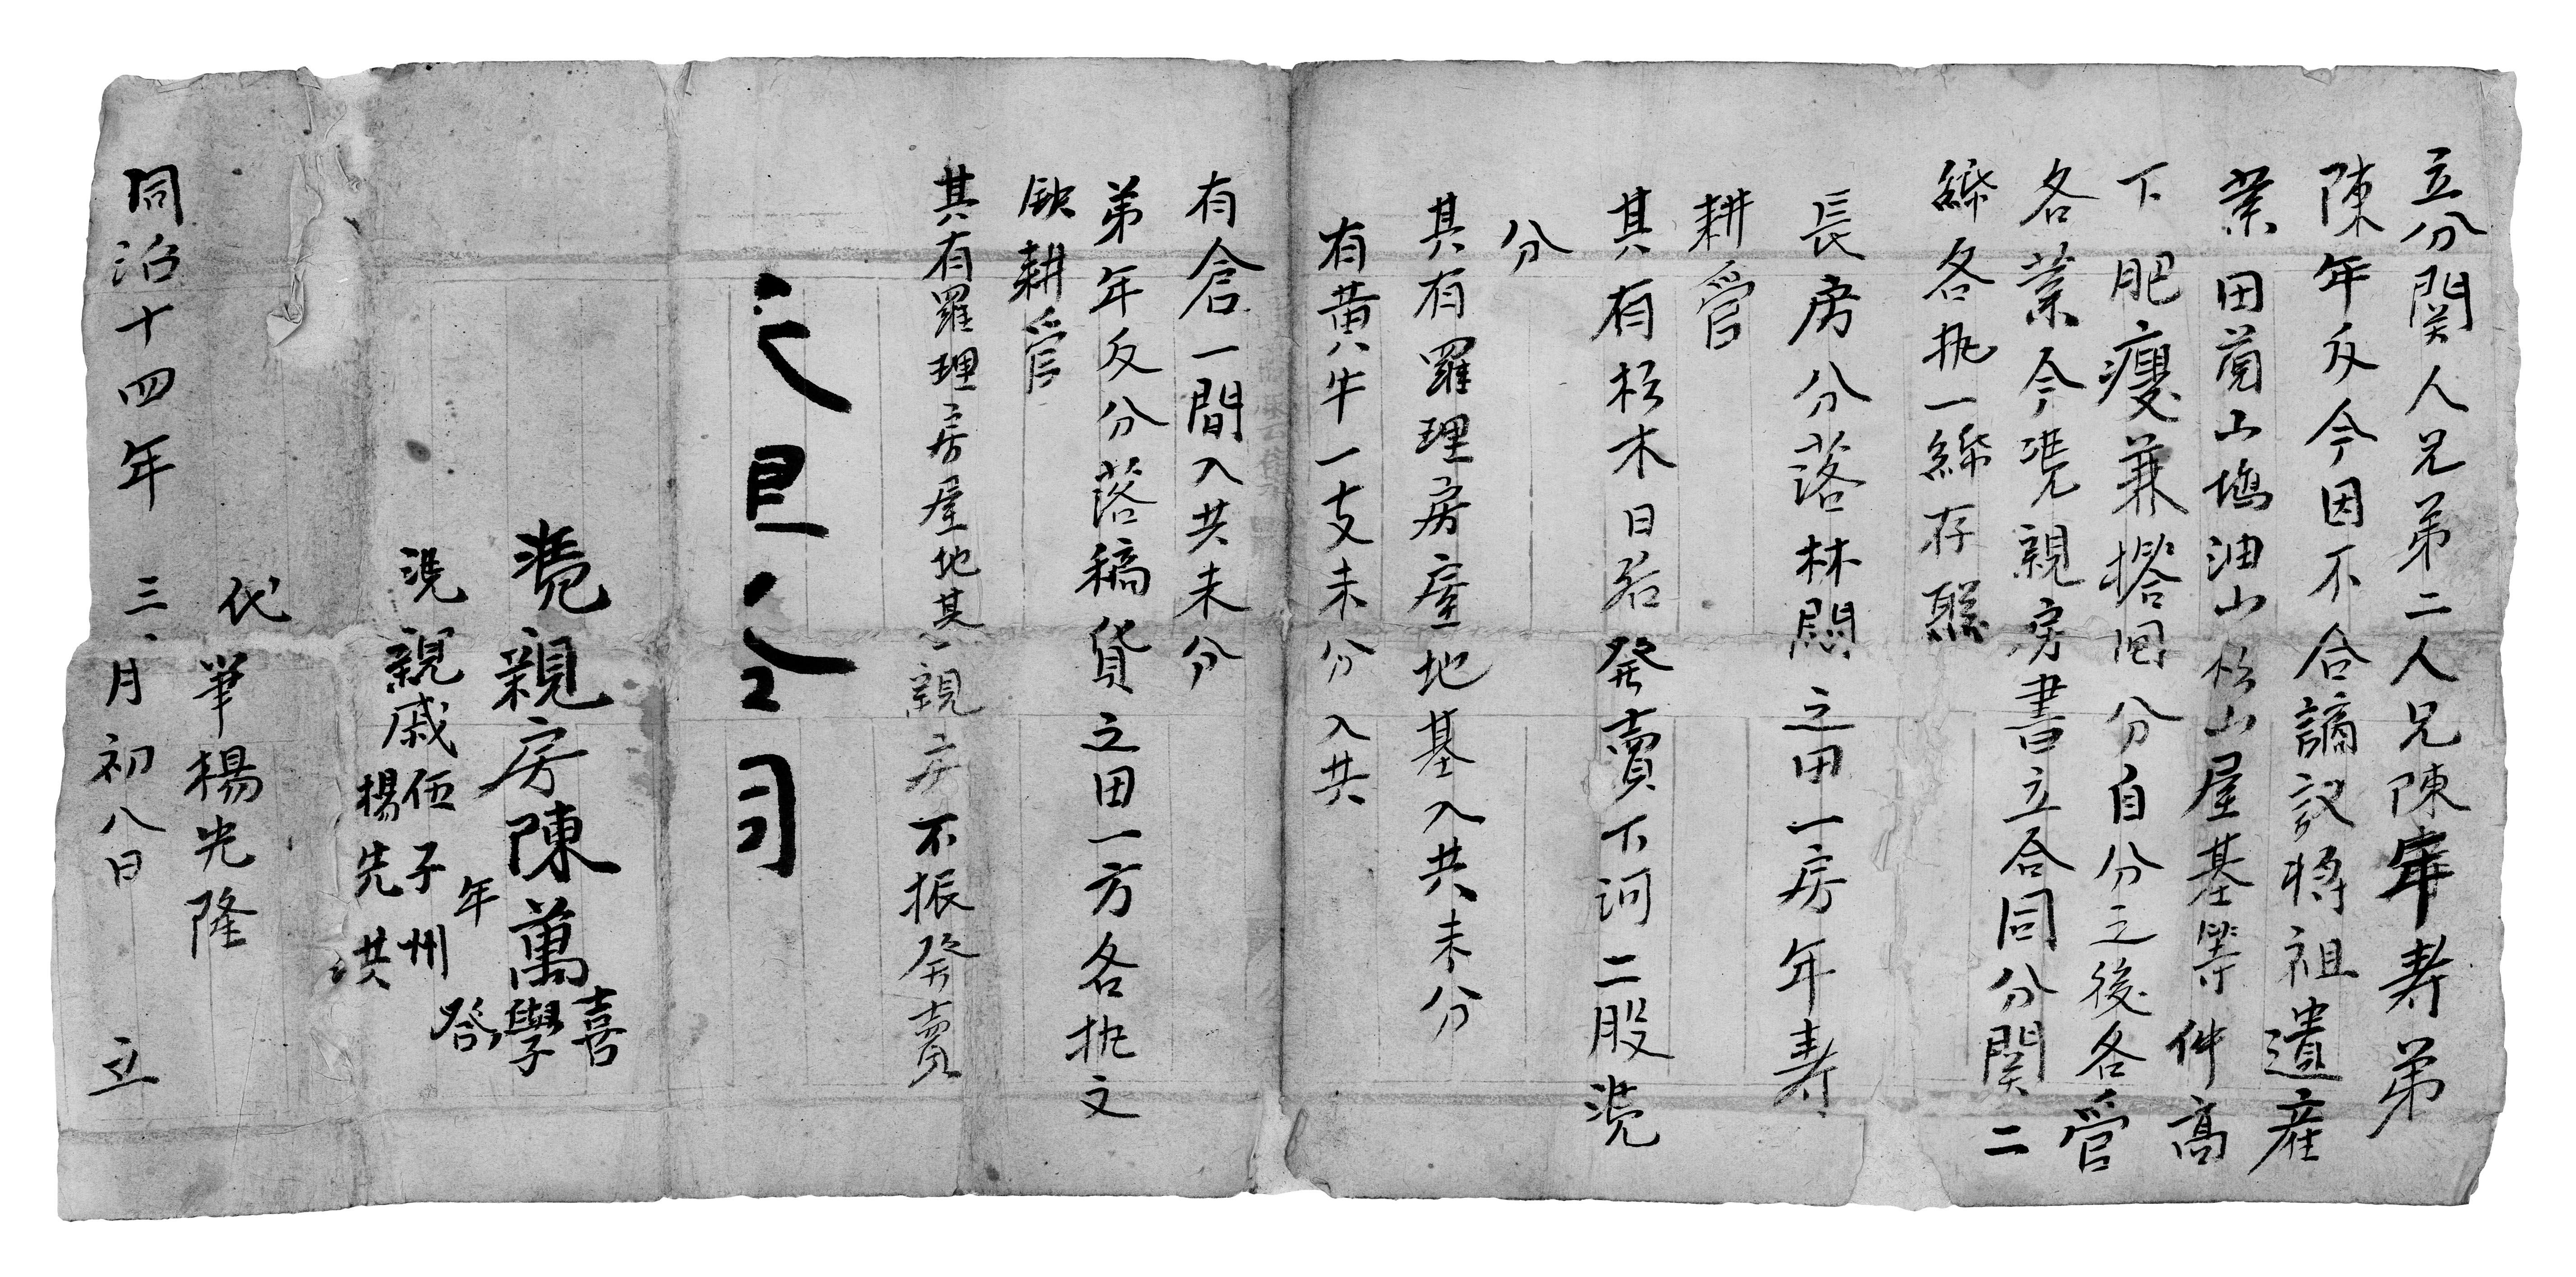 立分関人兄弟二人兄陳年寿弟
陳年反今因不合謫議将祖遺産
業田園山塲油山杉山屋基等件高
下肥瘦兼搭囬分自分之後各管
各業今凴親房書立合同分関二
䋿各执一䋿存照
長房分落林関之田一房年寿
耕管
其有杉木日后發賣下河二股凴
分
其有羅理房屋地基入共未分
有黄牛一支未分入共
有倉一間入共未分
弟年反分落稿貸之田一方各执文
耕管
其有羅理房屋地基親房不振發賣
凴親房陳萬喜
學
年發
凴親戚伍子州
楊先洪
代筆楊光隆
同治十四年三月初八日立